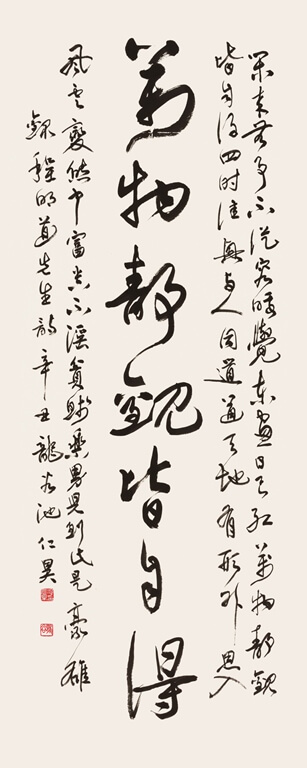 萬物靜觀皆自得
閑來無事不從容睡覺東窗日已紅萬物靜觀
皆自得四時佳興與人同道通天地有形外思入
風雲變態中富貴不淫貧賤樂男兒到此是豪雄
錄程明道先生詩辛丑龍池仁昊